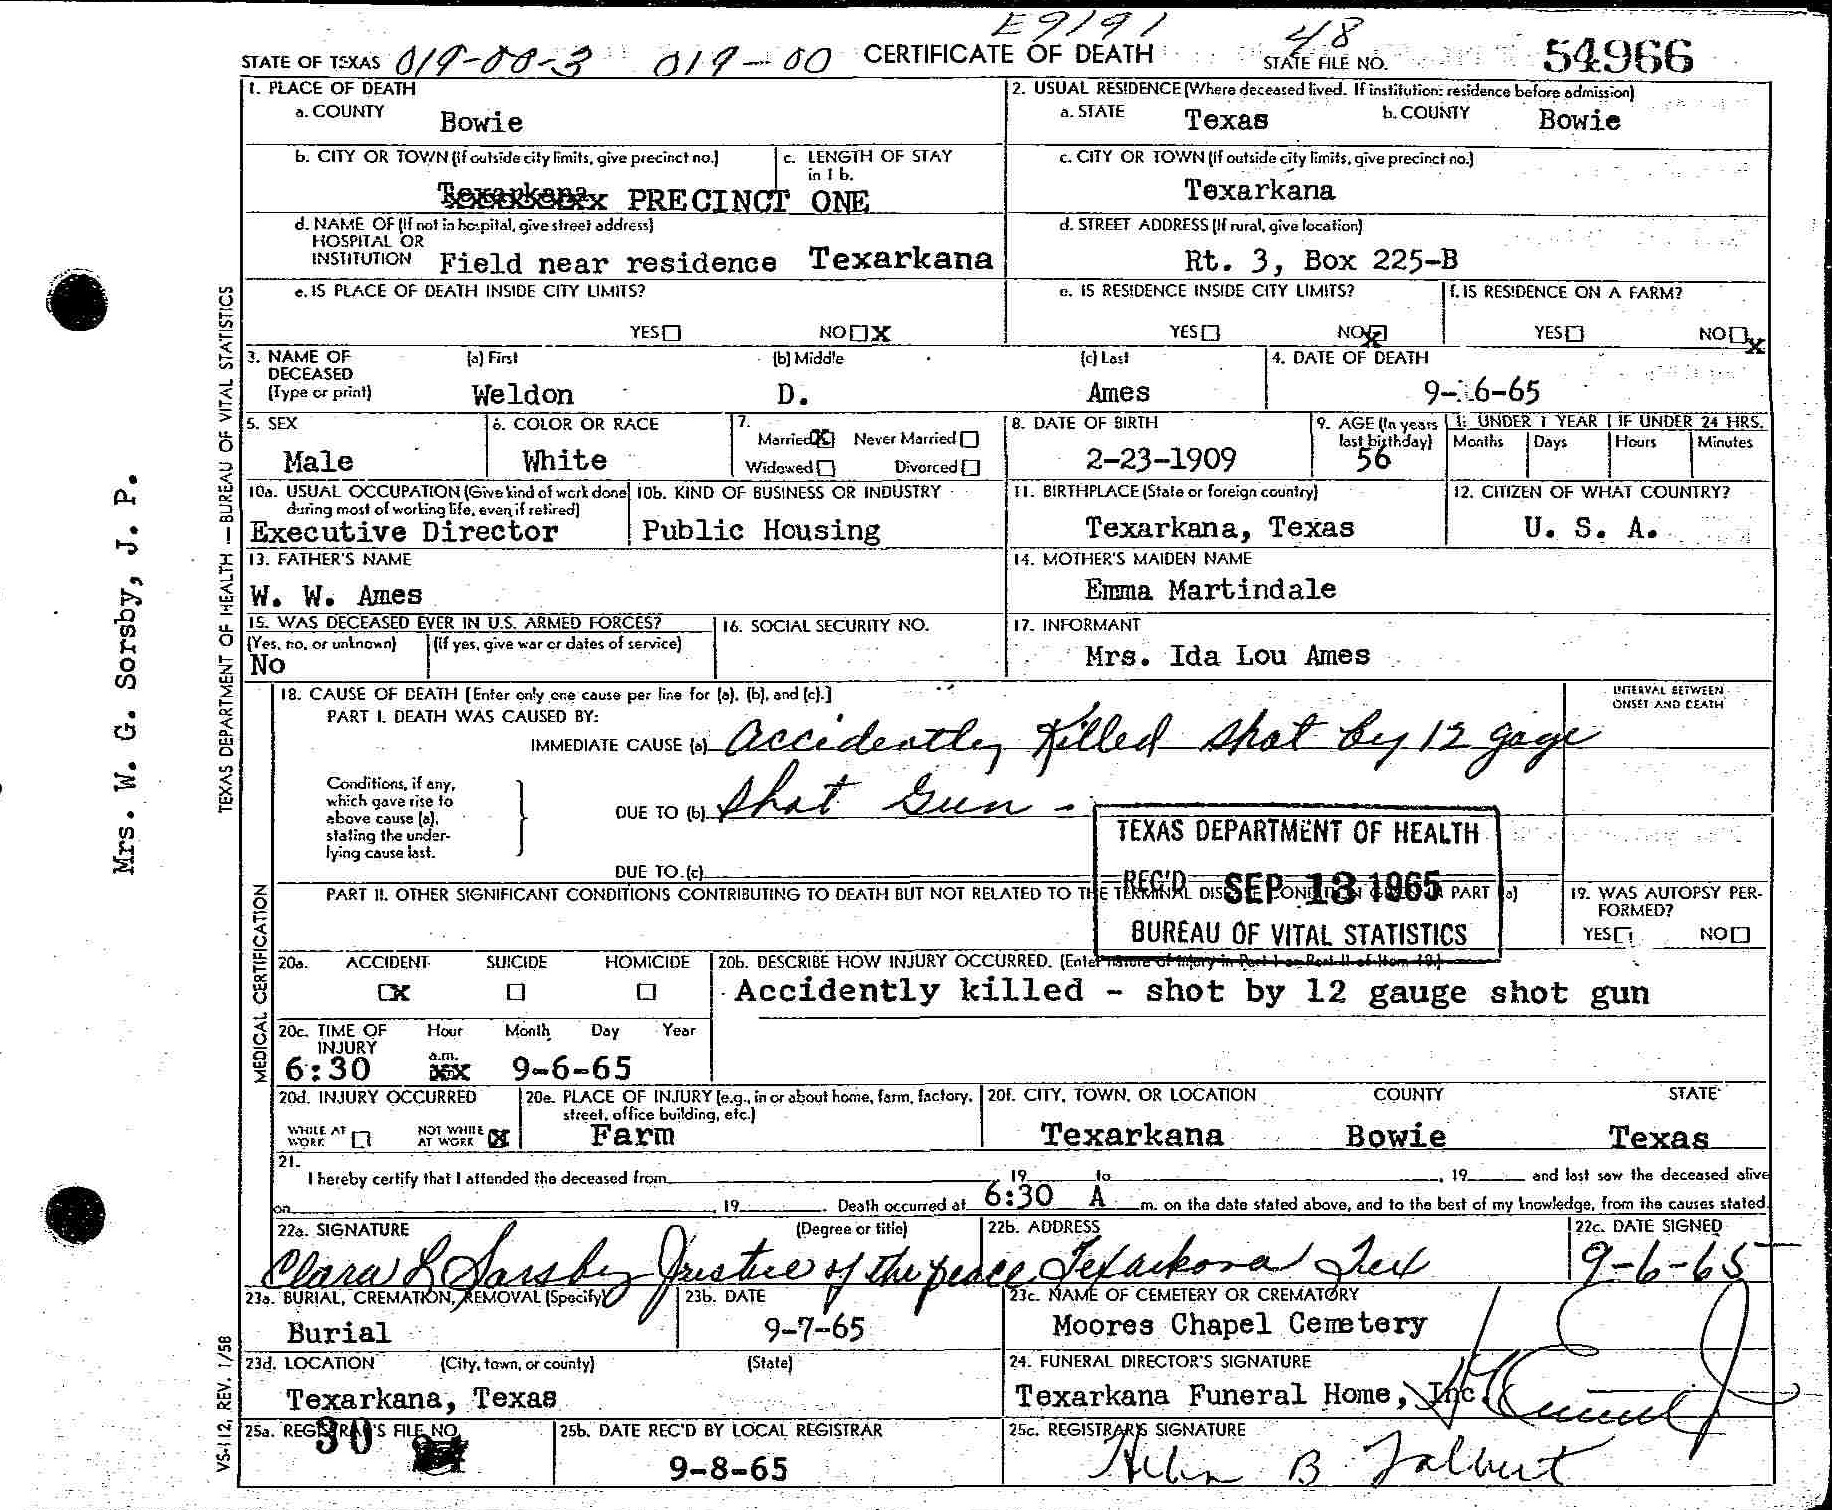 E9191
48
STATE OF TEXAS 019-00-3 019-00 CERTIFICATE OF DEATH STATE FILE NO. 54966
1. PLACE OF DEATH
a. COUNTY Bowie
2. USUAL RESIDENCE (Where deceased lived. If institution: residence before admission)
a. STATE Texas b. COUNTY Bowie
b. CITY OR TOWN (If outside city limits, give precinct no.) c. LENGTH OF STAY in 1 b.
Texarkana PRECINCT ONE
c. CITY OR TOWN (If outside city limits, give precinct no.)
Texarkana
d. NAME OF (If not in hospital, give street address)
HOSPITAL OR
INSTITUTION Field near residence Texarkana
d. STREET ADDRESS (If rural, give location)
Rt. 3, Box 225-B
e. IS PLACE OF DEATH INSIDE CITY LIMITS?
YES NO X
e. IS RESIDENCE INSIDE CITY LIMITS?
YES NO X
f. IS RESIDENCE ON A FARM?
YES NO X
3. NAME OF DECEASED (Type or print)
(a) First (b) Middle (c) Last
Weldon D. Ames
4. DATE OF DEATH
9-6-65
5. SEX
Male
6. COLOR OR RACE
White
7.
Married X Never Married
Widowed Divorced
8. DATE OF BIRTH
2-23-1909
9. AGE (In years last birthday)
56
IF UNDER 1 YEAR IF UNDER 24 HRS.
Months Days Hours Minutes
10a. USUAL OCCUPATION (Give kind of work done during most of working life, even if retired)
Executive Director
10b. KIND OF BUSINESS OR INDUSTRY
Public Housing
11. BIRTHPLACE (State or foreign country)
Texarkana, Texas
12. CITIZEN OF WHAT COUNTRY?
U. S. A.
13. FATHER'S NAME
W. W. Ames
14. MOTHER'S MAIDEN NAME
Emma Martindale
15. WAS DECEASED EVER IN U.S. ARMED FORCES?
(Yes, no, or unknown) (If yes, give war or dates of service)
No
16. SOCIAL SECURITY NO.
17. INFORMANT
Mrs. Ida Lou Ames
18. CAUSE OF DEATH [Enter only one cause per line for (a), (b), and (c).]
INTERVAL BETWEEN
ONSET AND DEATH
PART I. DEATH WAS CAUSED BY:
IMMEDIATE CAUSE (a) Accidently Killed shot by 12 gage
Conditions, if any,
which gave rise to
above cause (a),
stating the under-
lying cause last.
DUE TO (b) Shot Gun -
DUE TO (c)
TEXAS DEPARTMENT OF HEALTH
REC'D SEP 13 1965
BUREAU OF VITAL STATISTICS
PART II. OTHER SIGNIFICANT CONDITIONS CONTRIBUTING TO DEATH BUT NOT RELATED TO THE TERMINAL DISEASE CONDITION GIVEN IN PART I(a)
19. WAS AUTOPSY PER-
FORMED?
YES NO
20a. ACCIDENT SUICIDE HOMICIDE
X
20b. DESCRIBE HOW INJURY OCCURRED. (Enter nature of injury in Part I or Part II of Item 18.)
Accidently killed - shot by 12 gauge shot gun
20c. TIME OF INJURY Hour Month Day Year
6:30 a.m. 9-6-65
20d. INJURY OCCURRED
WHILE AT WORK NOT WHILE AT WORK X
20e. PLACE OF INJURY (e.g., in or about home, farm, factory, street, office building, etc.)
Farm
20f. CITY, TOWN, OR LOCATION COUNTY STATE
Texarkana Bowie Texas
21.
I hereby certify that I attended the deceased from 19 to , 19 and last saw the deceased alive
on , 19 . Death occurred at 6:30 A m. on the date stated above, and to the best of my knowledge, from the causes stated.
22a. SIGNATURE (Degree or title)
Clara L Sorsby Justice of the peace
22b. ADDRESS
Texarkana Tex
22c. DATE SIGNED
9-6-65
23a. BURIAL, CREMATION, REMOVAL (Specify)
Burial
23b. DATE
9-7-65
23c. NAME OF CEMETERY OR CREMATORY
Moores Chapel Cemetery
23d. LOCATION (City, town, or county) (State)
Texarkana, Texas
24. FUNERAL DIRECTOR'S SIGNATURE
Texarkana Funeral Home, Inc.
25a. REGISTRAR'S FILE NO.
30
25b. DATE REC'D BY LOCAL REGISTRAR
9-8-65
25c. REGISTRAR'S SIGNATURE
Helen B Talbert
Mrs. W. G. Sorsby, J. P.
TEXAS DEPARTMENT OF HEALTH — BUREAU OF VITAL STATISTICS
MEDICAL CERTIFICATION
VS-112, REV. 1/58